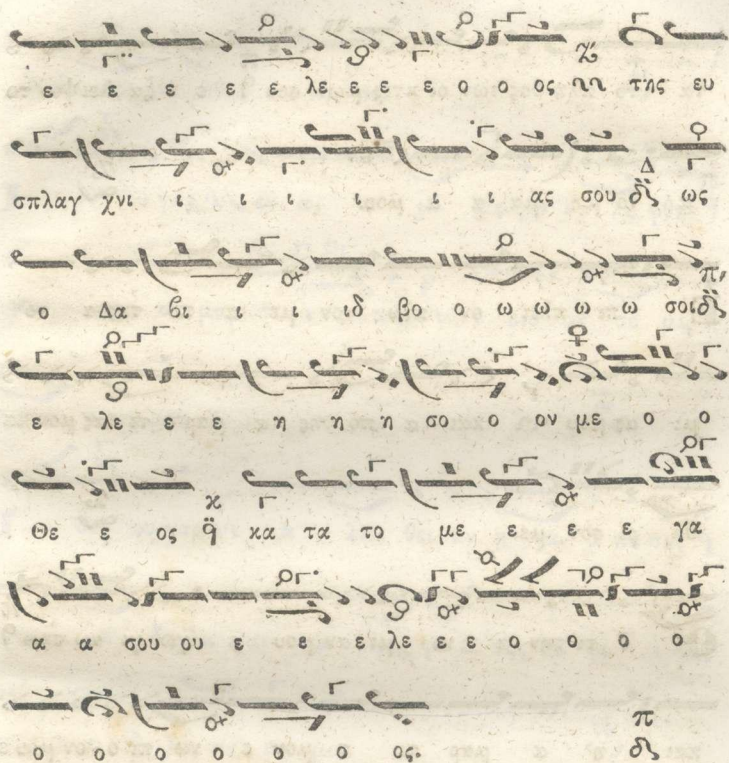 ε ε ε ε ε λε ε ε ε ο ο ος της ευ
σπλαγ χνι ι ι ι ι ι ι ας σου Δ ως
ο Δα βι ι ι ιδ βο ο ω ω ω ω σοι π
ε λε ε ε η η η σο ο ον με ο ο
Θε ε ος κ κα τα το με ε ε ε γα
α α σου ου ε ε ε λε ε ε ο ο ο ο
ο ο ο ο ο ο ος. π